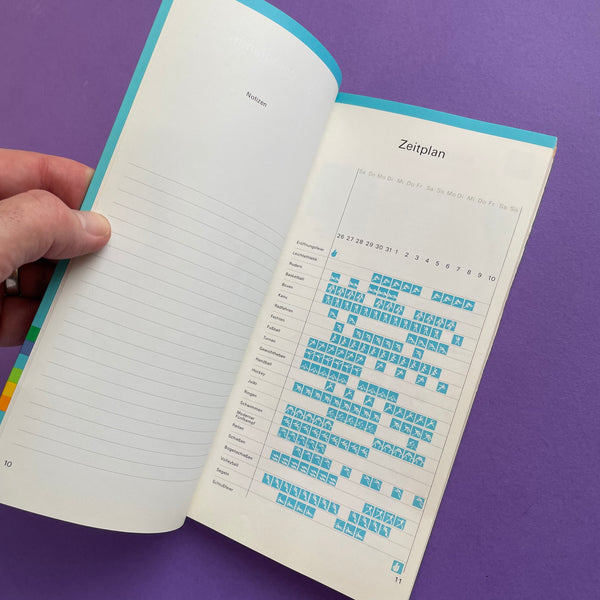 Notizen
10
Zeitplan
Sa So Mo Di Mi Do Fr Sa So Mo Di Mi Do Fr Sa So
26 27 28 29 30 31 1 2 3 4 5 6 7 8 9 10
Eröffnungsfeier
Leichtathletik
Rudern
Basketball
Boxen
Kanu
Radfahren
Fechten
Fußball
Turnen
Gewichtheben
Handball
Hockey
Judo
Ringen
Schwimmen
Moderner
Fünfkampf
Reiten
Schießen
Bogenschießen
Volleyball
Segeln
Schlußfeier
11